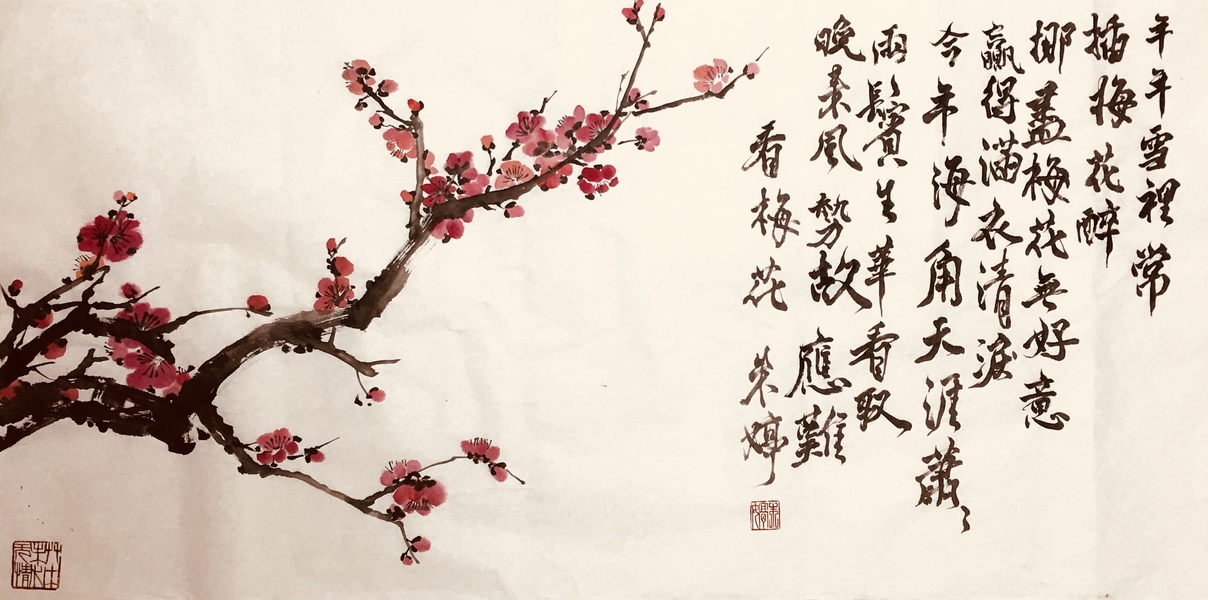 年年雪裡常
插梅花醉
挪盡梅花無好意
贏得滿衣清淚
今年海角天涯蕭々
兩鬢生華看取
晚來風勢故應難
看梅花 婷